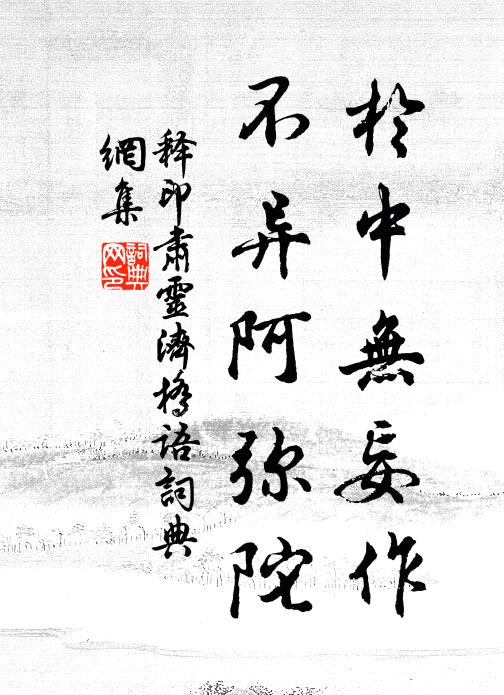 於中無妄作
不异阿弥陀
释印肃靈濟橋语詞典
網集
詞典
网印